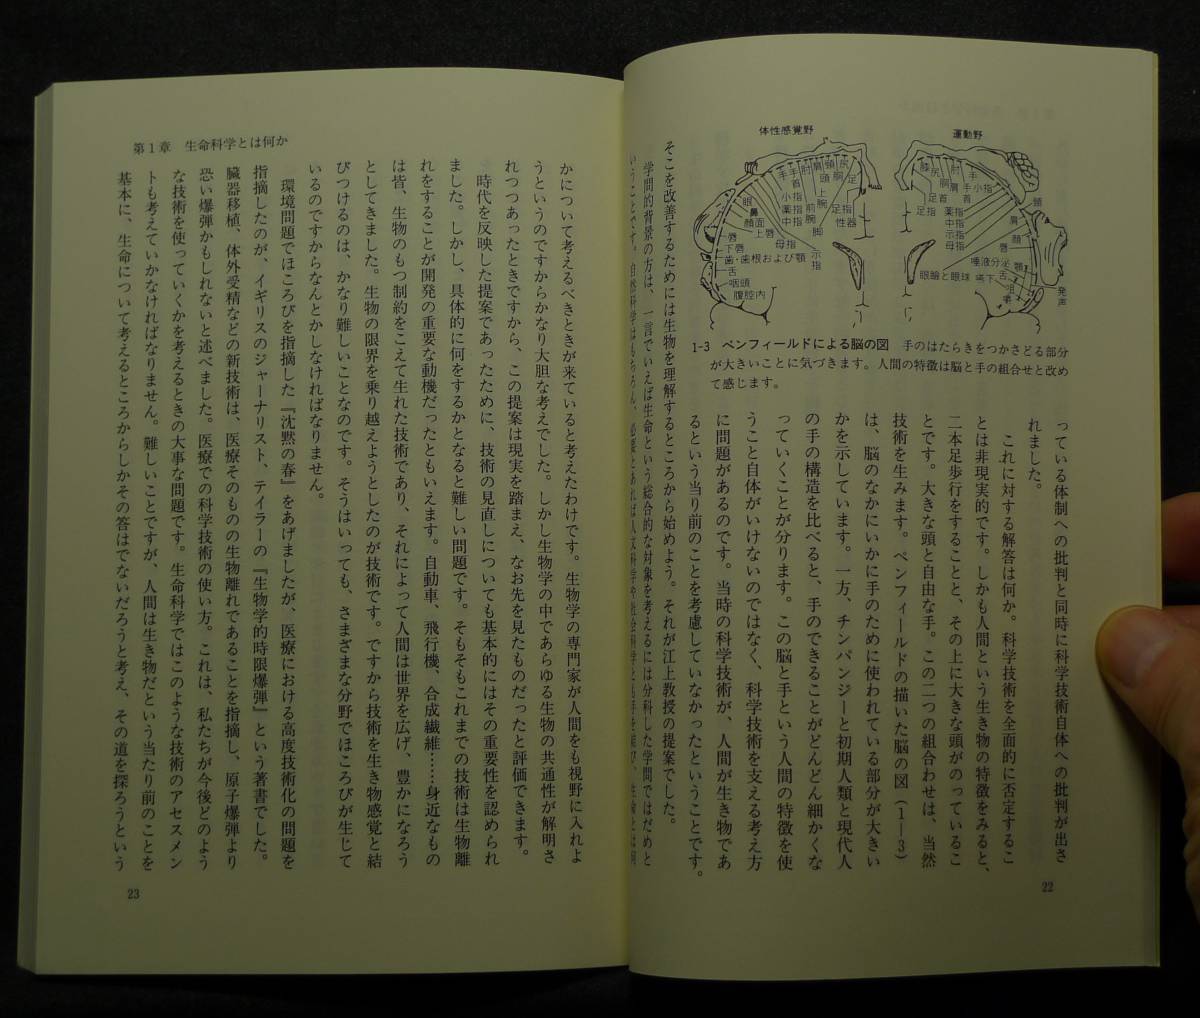 体性感覚野
運動野
1-3 ペンフィールドによる脳の図 手のはたらきをつかさどる部分
が大きいことに気づきます。人間の特徴は脳と手の組合せと改め
て感じます。
っている体制への批判と同時に科学技術自体への批判が出さ
れました。
これに対する解答は何か。科学技術を全面的に否定するこ
とは非現実的です。しかも人間という生き物の特徴をみると、
二本足歩行をすることと、その上に大きな頭がのっているこ
とです。大きな頭と自由な手。この二つの組合わせは、当然
技術を生みます。ペンフィールドの描いた脳の図（1―3）
は、脳のなかにいかに手のために使われている部分が大きい
かを示しています。一方、チンパンジーと初期人類と現代人
の手の構造を比べると、手のできることがどんどん細かくな
っていくことが分ります。この脳と手という人間の特徴を使
うこと自体がいけないのではなく、科学技術を支える考え方
に問題があるのです。当時の科学技術が、人間が生き物であ
るという当り前のことを考慮していなかったということです。
そこを改善するためには生物を理解するところから始めよう。それが江上教授の提案でした。
学問的背景の方は、一言でいえば生命という総合的な対象を考えるには分科した学問ではだめと
22
第1章 生命科学とは何か
かについて考えるべきときが来ていると考えたわけです。生物学の専門家が人間をも視野に入れよ
うというのですからかなり大胆な考えでした。しかし生物学の中であらゆる生物の共通性が解明さ
れつつあったときですから、この提案は現実を踏まえ、なお先を見たものだったと評価できます。
時代を反映した提案であったために、技術の見直しについても基本的にはその重要性を認められ
ました。しかし、具体的に何をするかとなると難しい問題です。そもそもこれまでの技術は生物離
れをすることが開発の重要な動機だったともいえます。自動車、飛行機、合成繊維……身近なもの
は皆、生物のもつ制約をこえて生れた技術であり、それによって人間は世界を広げ、豊かになろう
としてきました。生物の限界を乗り越えようとしたのが技術です。ですから技術を生き物感覚と結
びつけるのは、かなり難しいことなのです。そうはいっても、さまざまな分野でほころびが生じて
いるのですからなんとかしなければなりません。
環境問題でほころびを指摘した『沈黙の春』をあげましたが、医療における高度技術化の問題を
指摘したのが、イギリスのジャーナリスト、テイラーの『生物学的時限爆弾』という著書でした。
臓器移植、体外受精などの新技術は、医療そのものの生物離れであることを指摘し、原子爆弾より
恐い爆弾かもしれないと述べました。医療での科学技術の使い方。これは、私たちが今後どのよう
な技術を使っていくかを考えるときの大事な問題です。生命科学ではこのような技術のアセスメン
トも考えていかなければなりません。難しいことですが、人間は生き物だという当たり前のことを
基本に、生命について考えるところからしかその答はでないだろうと考え、その道を探ろうという
23